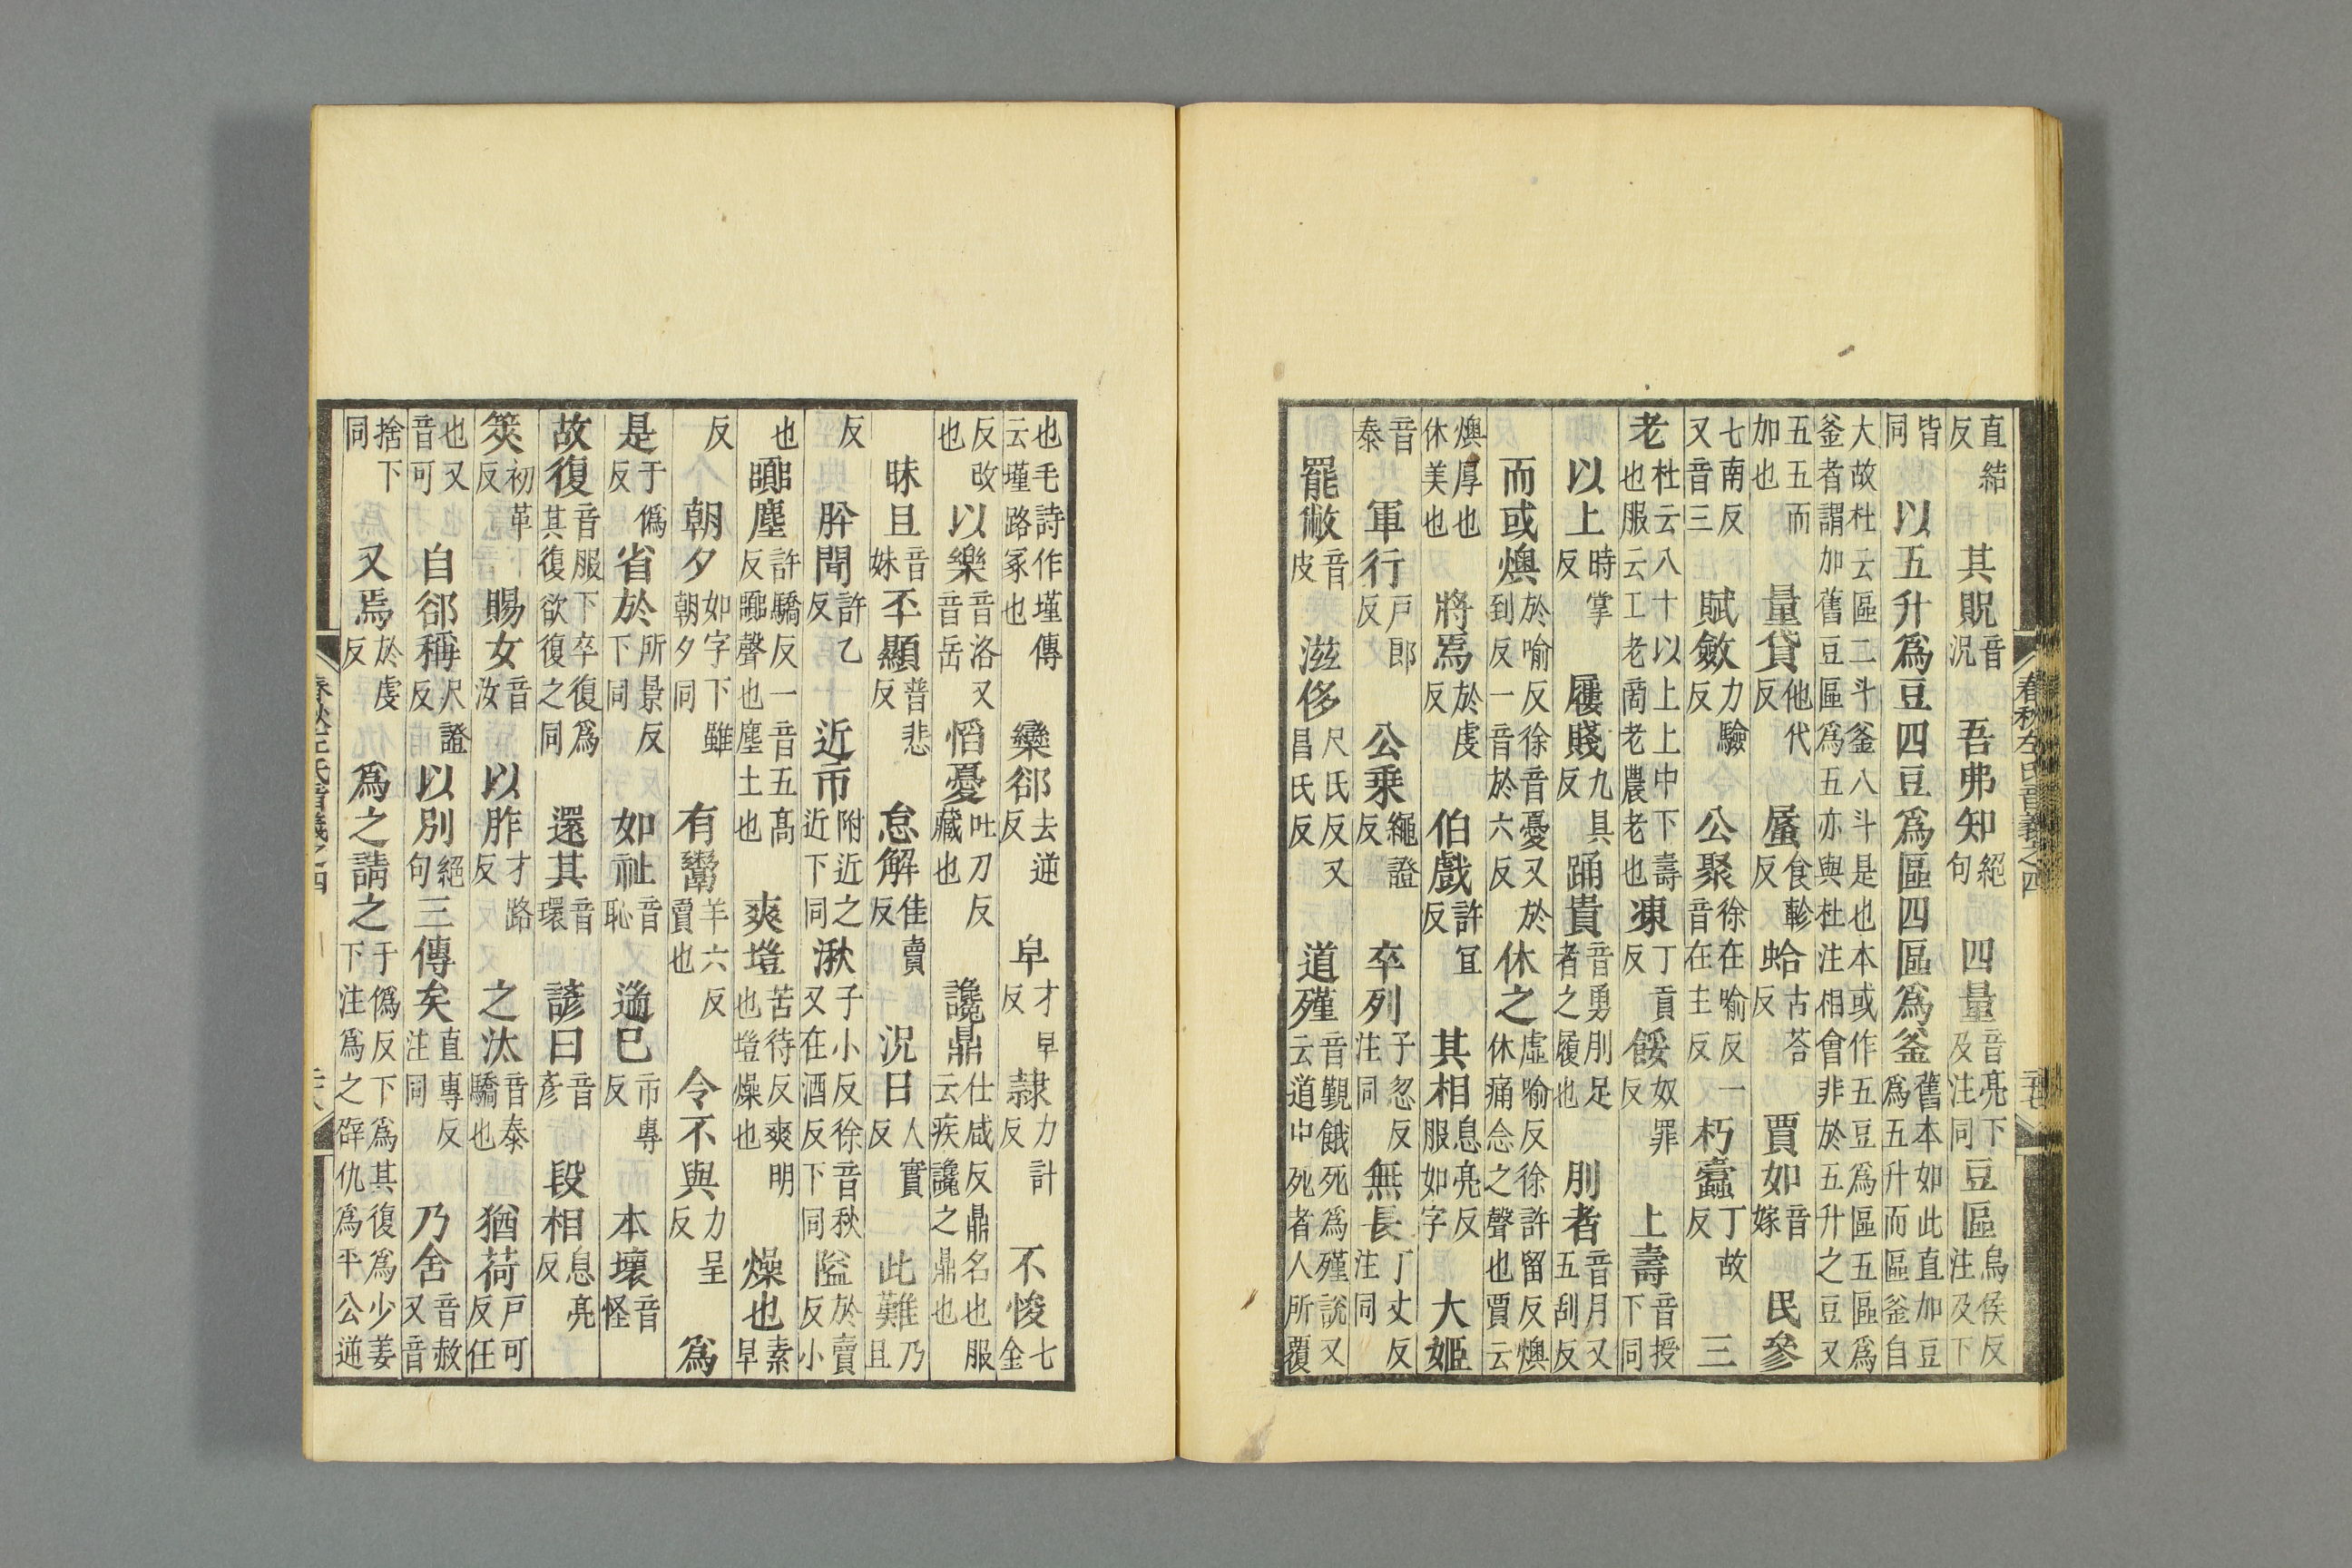 春秋左氏音義之四
直結反 其貺音況 吾弗知絕句 四量音亮下及注同 豆區烏侯反注及下
皆同 以五升爲豆四豆爲區四區爲釜舊本如此直加豆爲五升而區釜自
大故杜云區二斗釜八斗是也本或作五豆爲區五區爲釜者謂加舊豆區爲五亦與杜注相會非於五升之豆又
五五而加也 量貸他代反 蜃食軫反 蛤古荅反 賈如音嫁 民參
七南反又音三 賦斂力驗反 公聚徐在喻反一音在主反 朽蠹丁故反 三
老杜云八十以上上中下壽也服云工老商老農老也 凍丁貢反 餒奴罪反 上壽音授下同
以上時掌反 屨賤九具反 踊貴音勇刖足者之履也 刖者音月又五刮反
而或燠於喻反徐音憂又於到反一音於六反 休之虛喻反徐許留反燠休痛念之聲也賈云
燠厚也休美也 將焉於虔反 伯戲許宜反 其相息亮反服如字 大姬
音泰 軍行戶郎反 公乘繩證反 卒列子忽反注同 無長丁丈反注同
罷敝音皮 滋侈尺氏反又昌氏反 道殣音覲餓死爲殣說又云道中死者人所覆
也毛詩作墐傳云墐路冢也 欒郤去逆反 皁才早反 隸力計反 不悛七全
反改也 以樂音洛又音岳 慆憂吐刀反藏也 讒鼎仕咸反鼎名也服云疾讒之鼎也
昧旦音妹 丕顯普悲反 怠解佳賣反 況日人實反 此難乃且
反 肸聞許乙反 近市附近之近下同 湫子小反徐音秋又在酒反下同 隘於賣反小
也 囂塵許驕反一音五高反囂聲也塵土也 爽塏苦待反爽明也塏燥也 燥也素早
反 朝夕如字下雖朝夕同 有鬻羊六反賣也 令不與力呈反 爲
是于僞反 省於所景反下同 如祉音恥 遄已市專反 本壞音怪
故復音服下卒復爲其復欲復之同 還其音環 諺曰音彥 段相息亮反
筴初革反 賜女音汝 以胙才路反 之汰音泰驕也 猶荷戶可反任
也又音可 自郤稱尺證反 以別絕句 三傳矣直專反注同 乃舍音赦又音
捨下同 又焉於虔反 爲之請之于僞反下爲其復爲少姜下注爲之辟仇爲平公逆
春秋左氏音義之四